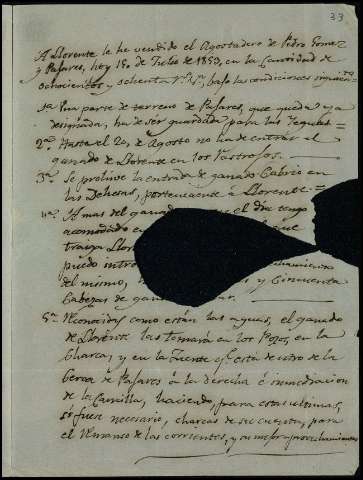 33
A Llorente le he vendido el Agostadero de Pedro Gomez
y Pajares, hoy 18 de Julio de 1859, en la Cantidad de
Ochocientos y ochenta R.s V.n, bajo las condiciones siguien.tes
1.a Una parte de terreno de Pajares, que queda ya
designada, ha de ser guardada para las Yeguas=
2.a Hasta el 20, de Agosto no ha de entrar el
ganado de Llorente en los Rastrojos.
3.a Se prohive la entrada de ganado Cabrio en
las Dehesas, perteneciente á Llorente=
4.a A mas del ganado el dia tengo
acomodado en que
traiga Llor
puedo intro
del mismo, y Cincuenta
Cabezas de gana
5.a Reconocidas como están las aguas, el ganado
de Llorente las tomará en los Pozos, en la
Charca, y en la Fuente q.e está dentro de la
Cerca de Pajares á la derecha é inmediacion
de la Casilla, haciendo, para estas ultimas,
si fuere necesario, charcas de su cuenta, para
el Remanso de las corrientes, y su mejor aprovechamiento